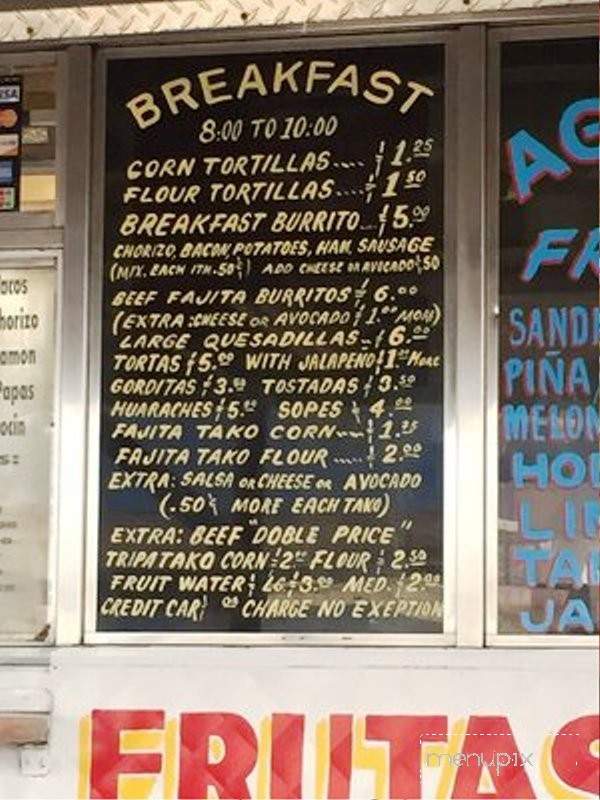 BREAKFAST
8:00 TO 10:00
CORN TORTILLAS.... $1.25
FLOUR TORTILLAS....$1.50
BREAKFAST BURRITO..$5.00
CHORIZO, BACON, POTATOES, HAM, SAUSAGE
(MIX. EACH ITM .50¢) ADD CHEESE OR AVOCADO $.50
BEEF FAJITA BURRITOS $6.00
(EXTRA: CHEESE OR AVOCADO $1.00 MORE)
LARGE QUESADILLAS-$6.00
TORTAS $5.00 WITH JALAPENO $1.00 MORE
GORDITAS $3.00 TOSTADAS $3.50
HUARACHES $5.00 SOPES $4.00
FAJITA TAKO CORN---$1.75
FAJITA TAKO FLOUR .....$2.00
EXTRA: SALSA OR CHEESE OR AVOCADO
(.50¢ MORE EACH TAKO)
EXTRA: BEEF "DOBLE PRICE"
TRIPA TAKO CORN $2.00 FLOUR $2.50
FRUIT WATER $ LG $3.00 MED. $2.00
CREDIT CAR CHARGE NO EXEPTION
VISA
acos
horizo
amon
apas
ocin
AG
FR
SAND
PIÑA
MELON
HO
LI
TA
JA
FRUTAS
menupix